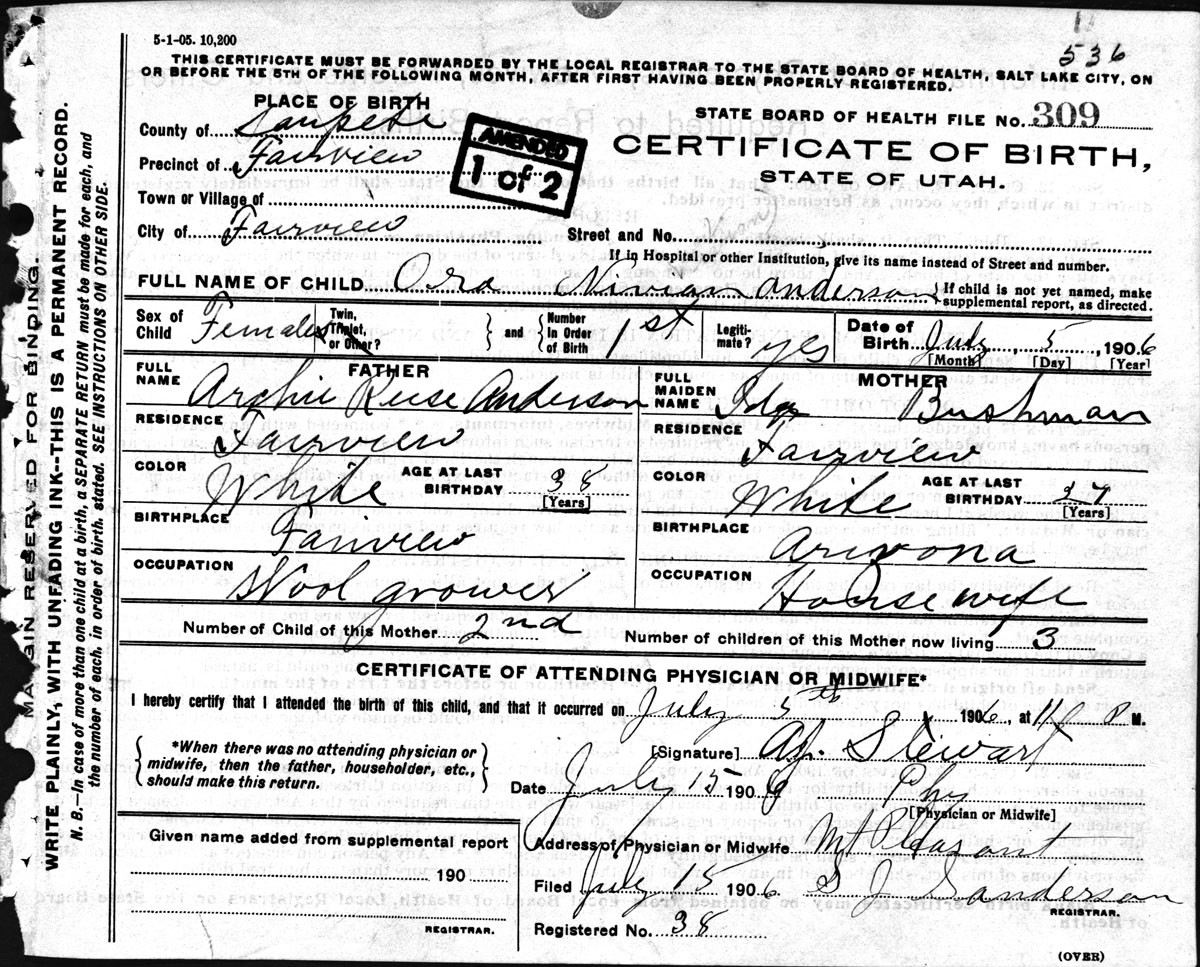 536
5-1-05. 10,200
THIS CERTIFICATE MUST BE FORWARDED BY THE LOCAL REGISTRAR TO THE STATE BOARD OF HEALTH, SALT LAKE CITY, ON
OR BEFORE THE 5TH OF THE FOLLOWING MONTH, AFTER FIRST HAVING BEEN PROPERLY REGISTERED.
PLACE OF BIRTH
STATE BOARD OF HEALTH FILE NO. 309
County of Sanpete
AMENDED
1 of 2
CERTIFICATE OF BIRTH,
Precinct of Fairview
STATE OF UTAH.
Town or Village of
City of Fairview
Street and No.
If in Hospital or other Institution, give its name instead of Street and number.
FULL NAME OF CHILD Ora Vivian Anderson
{If child is not yet named, make
supplemental report, as directed.
Sex of Child Female
Twin, Triplet, or Other?
and
Number In Order of Birth 1st
Legiti-mate? yes
Date of Birth July 5, 1906
[Month] [Day] [Year]
FATHER
FULL NAME Archie Reese Anderson
RESIDENCE Fairview
COLOR White
AGE AT LAST BIRTHDAY 38
[Years]
BIRTHPLACE Fairview
OCCUPATION Wool grower
MOTHER
FULL MAIDEN NAME Ida Bushman
RESIDENCE Fairview
COLOR White
AGE AT LAST BIRTHDAY
[Years]
BIRTHPLACE Arizona
OCCUPATION House wife
Number of Child of this Mother 2nd
Number of children of this Mother now living 3
CERTIFICATE OF ATTENDING PHYSICIAN OR MIDWIFE*
I hereby certify that I attended the birth of this child, and that it occurred on July 5th, 1906, at 11 P M.
{*When there was no attending physician or
midwife, then the father, householder, etc.,
should make this return.}
[Signature] Stewart
Date July 15 1906 Phy
[Physician or Midwife]
Given name added from supplemental report
Address of Physician or Midwife Mt Pleasant
190
Filed July 15 1906 S J Sanderson
REGISTRAR.
REGISTRAR.
Registered No. 38
(OVER)
MARGIN RESERVED FOR BINDING.
WRITE PLAINLY, WITH UNFADING INK--THIS IS A PERMANENT RECORD.
N. B.--In case of more than one child at a birth, a SEPARATE RETURN must be made for each, and
the number of each, in order of birth, stated. SEE INSTRUCTIONS ON OTHER SIDE.